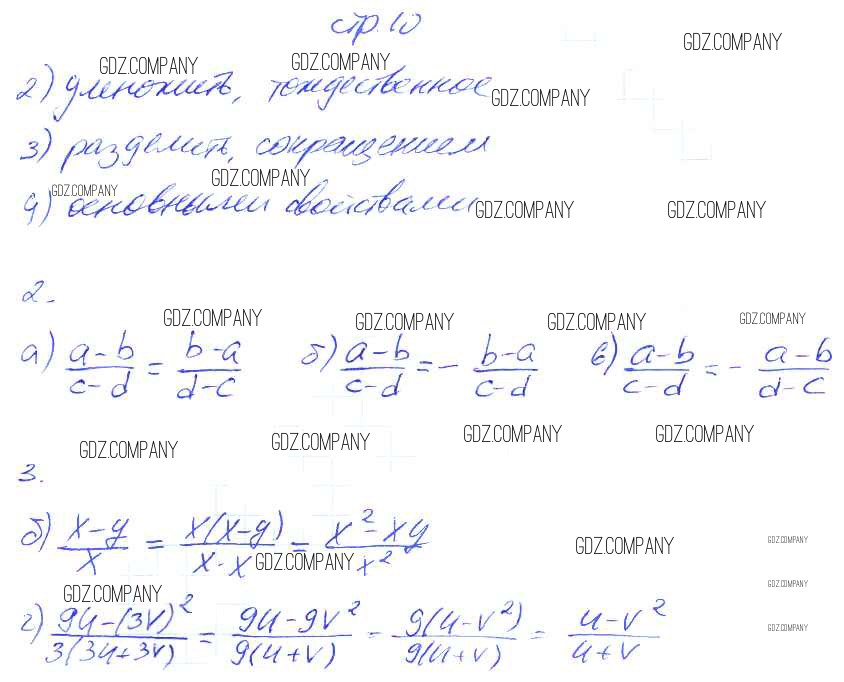 стр. 10
GDZ.COMPANY GDZ.COMPANY GDZ.COMPANY
2) умножить, тождественное GDZ.COMPANY
3) разделить, сокращением
GDZ.COMPANY GDZ.COMPANY
4) основными свойствами GDZ.COMPANY GDZ.COMPANY
2.
GDZ.COMPANY GDZ.COMPANY GDZ.COMPANY GDZ.COMPANY
а) (a-b)/(c-d) = (b-a)/(d-c) б) (a-b)/(c-d) = - (b-a)/(c-d) в) (a-b)/(c-d) = - (a-b)/(d-c)
GDZ.COMPANY GDZ.COMPANY GDZ.COMPANY GDZ.COMPANY
3.
б) (x-y)/x = x(x-y)/(x·x) = (x²-xy)/x²
GDZ.COMPANY GDZ.COMPANY GDZ.COMPANY
GDZ.COMPANY GDZ.COMPANY
г) (9u-(3v)²)/(3(3u+3v)) = (9u-9v²)/(9(u+v)) = 9(u-v²)/(9(u+v)) = (u-v²)/(u+v) GDZ.COMPANY